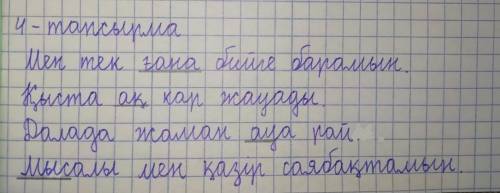 4-тапсырма
Мен тек ғана биге барамын.
Қыста ақ кар жауады.
Далада жаман ауа рай.
Мысалы мен қазір саябақтамын.